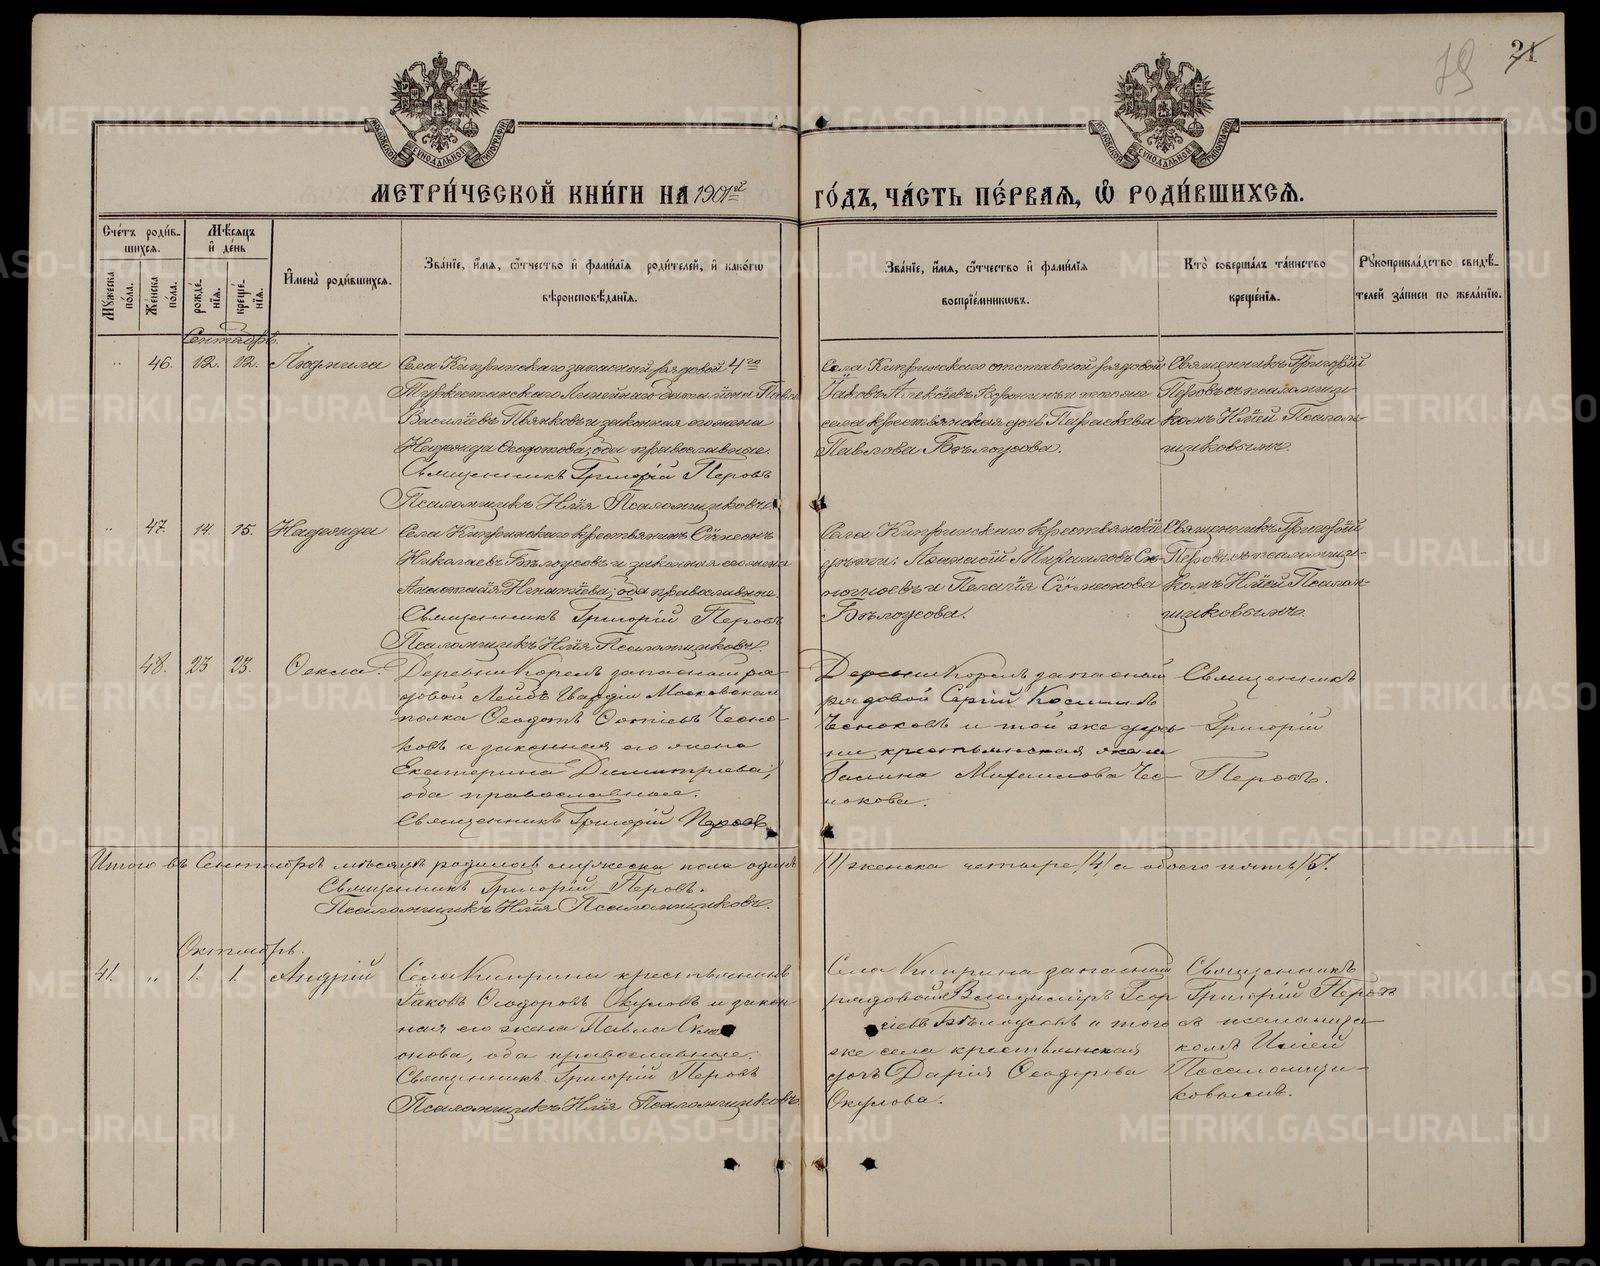 79 21
МОСКОВСКОЙ СѴНОДАЛЬНОЙ ТИПОГРАФІИ
МОСКОВСКОЙ СѴНОДАЛЬНОЙ ТИПОГРАФІИ
МЕТРИ́ЧЕСКОЙ КНИ́ГИ НА 1901й ГО́ДЪ, ЧА́СТЬ ПЕ́РВАѦ, Ѡ РОДИ́ВШИХСѦ.
Сче́тъ роди́вшихсѧ.
Мꙋ́жеска по́ла.
Же́нска по́ла.
Мѣ́сѧцъ и҆ де́нь
рожде́нїѧ.
креще́нїѧ.
И҆мена̀ роди́вшихсѧ.
Зва́нїе, и҆́мѧ, ѻ҆́тчество и҆ фами́лїѧ роди́телей, и҆ како́гѡ
вѣроисповѣ́данїѧ.
Зва́нїе, и҆́мѧ, ѻ҆́тчество и҆ фами́лїѧ
воспрїе́мникѡвъ.
Кто̀ соверша́лъ та́инство
креще́нїѧ.
Рꙋкоприкла́дство свидѣ́телей за́писи по жела́нїю.
Сентябрь.
" 46. 12. 12. Людмила
Села Кипринскаго запасный рядовой 4го
Туркестанскаго Линейнаго баталіона Павелъ
Василіевъ Пьянковъ и законная его жена
Надежда Ѳеодотова; оба православные.
Священникъ Григорій Перовъ
Псаломщикъ Илія Псаломщиковъ.
Села Кипринскаго отставной рядовой
Іаковъ Алексіевъ и того же
села крестьянская дочь Параскева
Павлова Бѣлоусова.
Священникъ Григорій
Перовъ съ псаломщи-
комъ Иліей Псалом-
щиковымъ.
" 47. 14. 15. Надежда
Села Кипринскаго крестьянинъ Сѵмеонъ
Николаевъ Бѣлоусовъ и законная его жена
Анастасія Игнатіева; оба православные.
Священникъ Григорій Перовъ
Псаломщикъ Илія Псаломщиковъ.
Села Кипринскаго крестьянскіе
дѣти: Михаиловъ
и Пелагія Сѵмеонова
Бѣлоусова.
Священникъ Григорій
Перовъ съ псаломщи-
комъ Иліей Псалом-
щиковымъ.
48. 23 23. Ѳекла.
Деревни Корелъ запасный ря-
довой Лейбъ Гвардіи Московскаго
полка Ѳеодотъ Чесно-
ковъ и законная его жена
Екатерина Димитріева;
оба православные.
Священникъ Григорій Перовъ
Деревни Корелъ запасный
рядовой Сергій Косминъ
Чесноковъ и той же дерев-
ни крестьянская жена
Галина Михаилова Чес-
нокова.
Священникъ
Григорій
Перовъ.
Итого въ Сентябрѣ мѣсяцѣ родилось мужеска пола одинъ /1/ женска четыре /4/ а обоего пять /5/.
Священникъ Григорій Перовъ.
Псаломщикъ Илія Псаломщиковъ.
Октябрь.
41. " 1. 1. Андрей
Села Киприна крестьянинъ
Іаковъ Ѳеодоровъ Окуловъ и закон-
ная его жена Павла
онова, оба православные.
Священникъ Григорій Перовъ
Псаломщикъ Илія Псаломщиковъ.
Села Киприна запасный
рядовой Владиміръ Геор-
гіевъ Бѣлоусовъ и того
же села крестьянская
дочь Дарія Ѳеодорова
Окулова.
Священникъ
Григорій Перовъ
съ псаломщи-
комъ Иліей
Псаломщи-
ковымъ.
METRIKI.GASO-URAL.RU